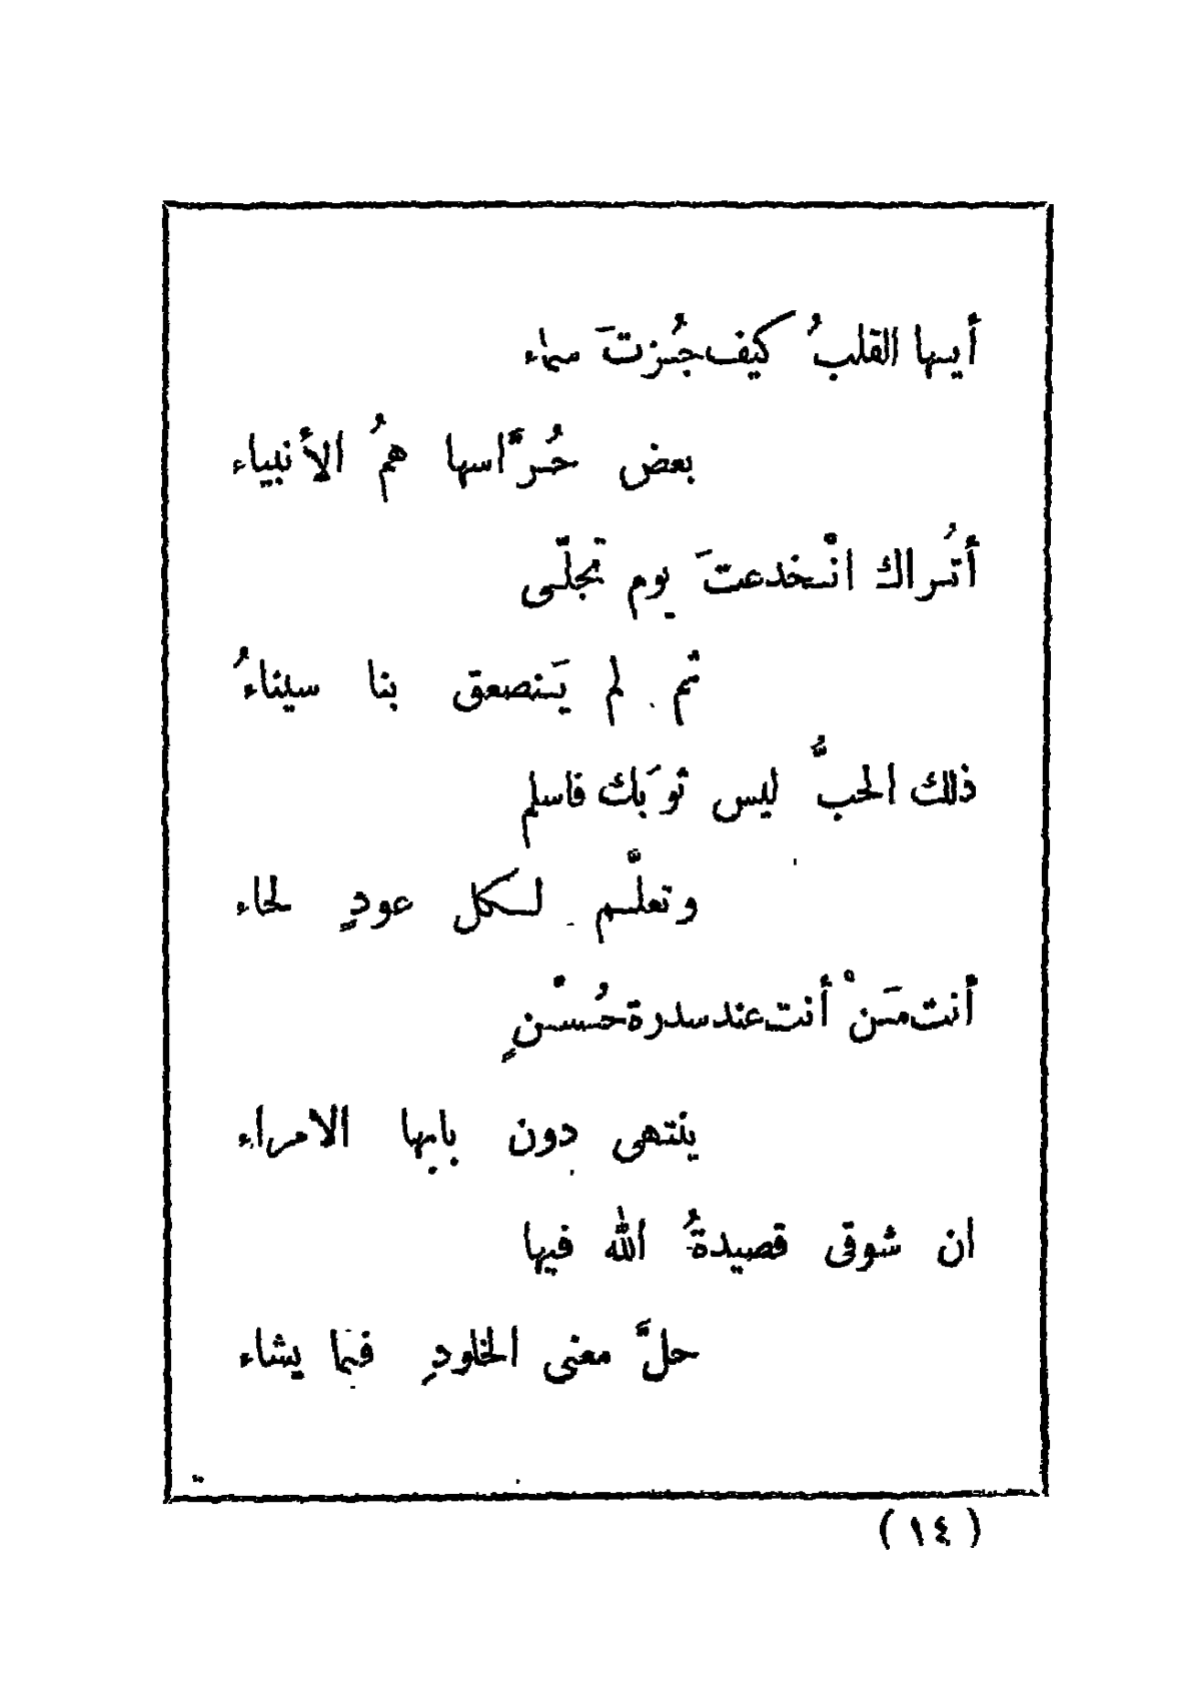 أيها القلبُ كيف جُزتَ سماء
بعض حُرَّاسها همُ الأنبياء
أتُراك انْخدعتَ يوم تجلّى
ثم لم يَنصعق بنا سيناءُ
ذلك الحبُّ ليس ثوَبك فاسلم
وتعلَّم لكل عودٍ لحاء
أنت مَنْ أنت عند سدرة حُسْنٍ
ينتهى دون بابها الامراء
ان شوقى قصيدةُ الله فيها
حلَّ معنى الخلودِ فيما يشاء
( ١٤ )